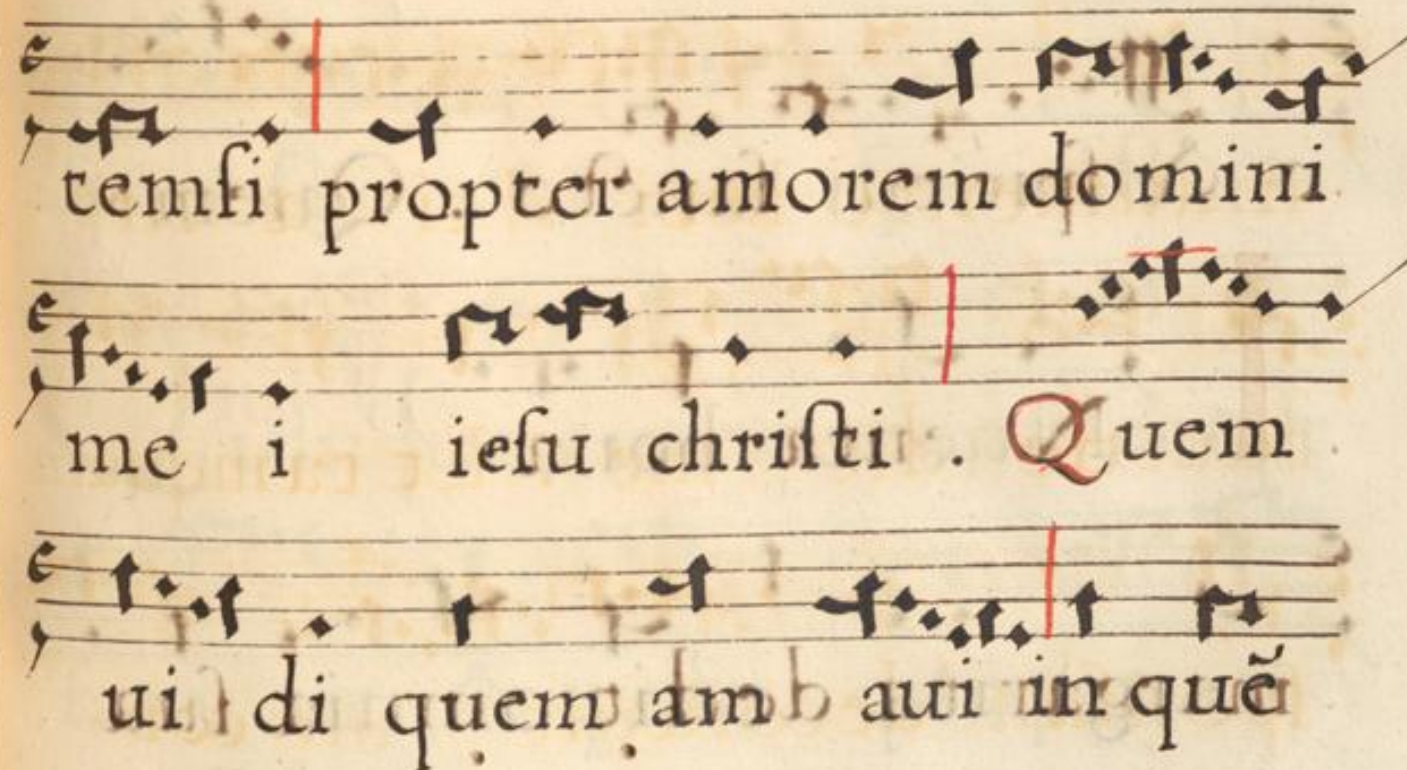 temſi propter amorem domini
me i ieſu chriſti . Quem
ui di quem am aui in quē